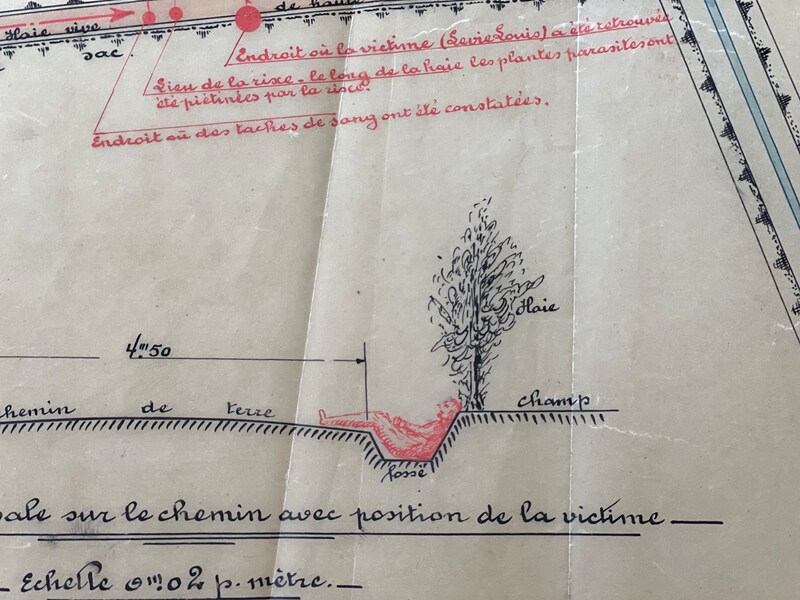 Haie vive
de haut
sac.
Endroit où la victime (Levie Louis) a été retrouvée
Lieu de la rixe - le long de la haie les plantes parasites ont
été piétinées par la rixe.
Endroit où des taches de sang ont été constatées.
Haie
4.m50
chemin de terre
champ
fossé
sale sur le chemin avec position de la victime
Echelle 0m02 p. mètre.